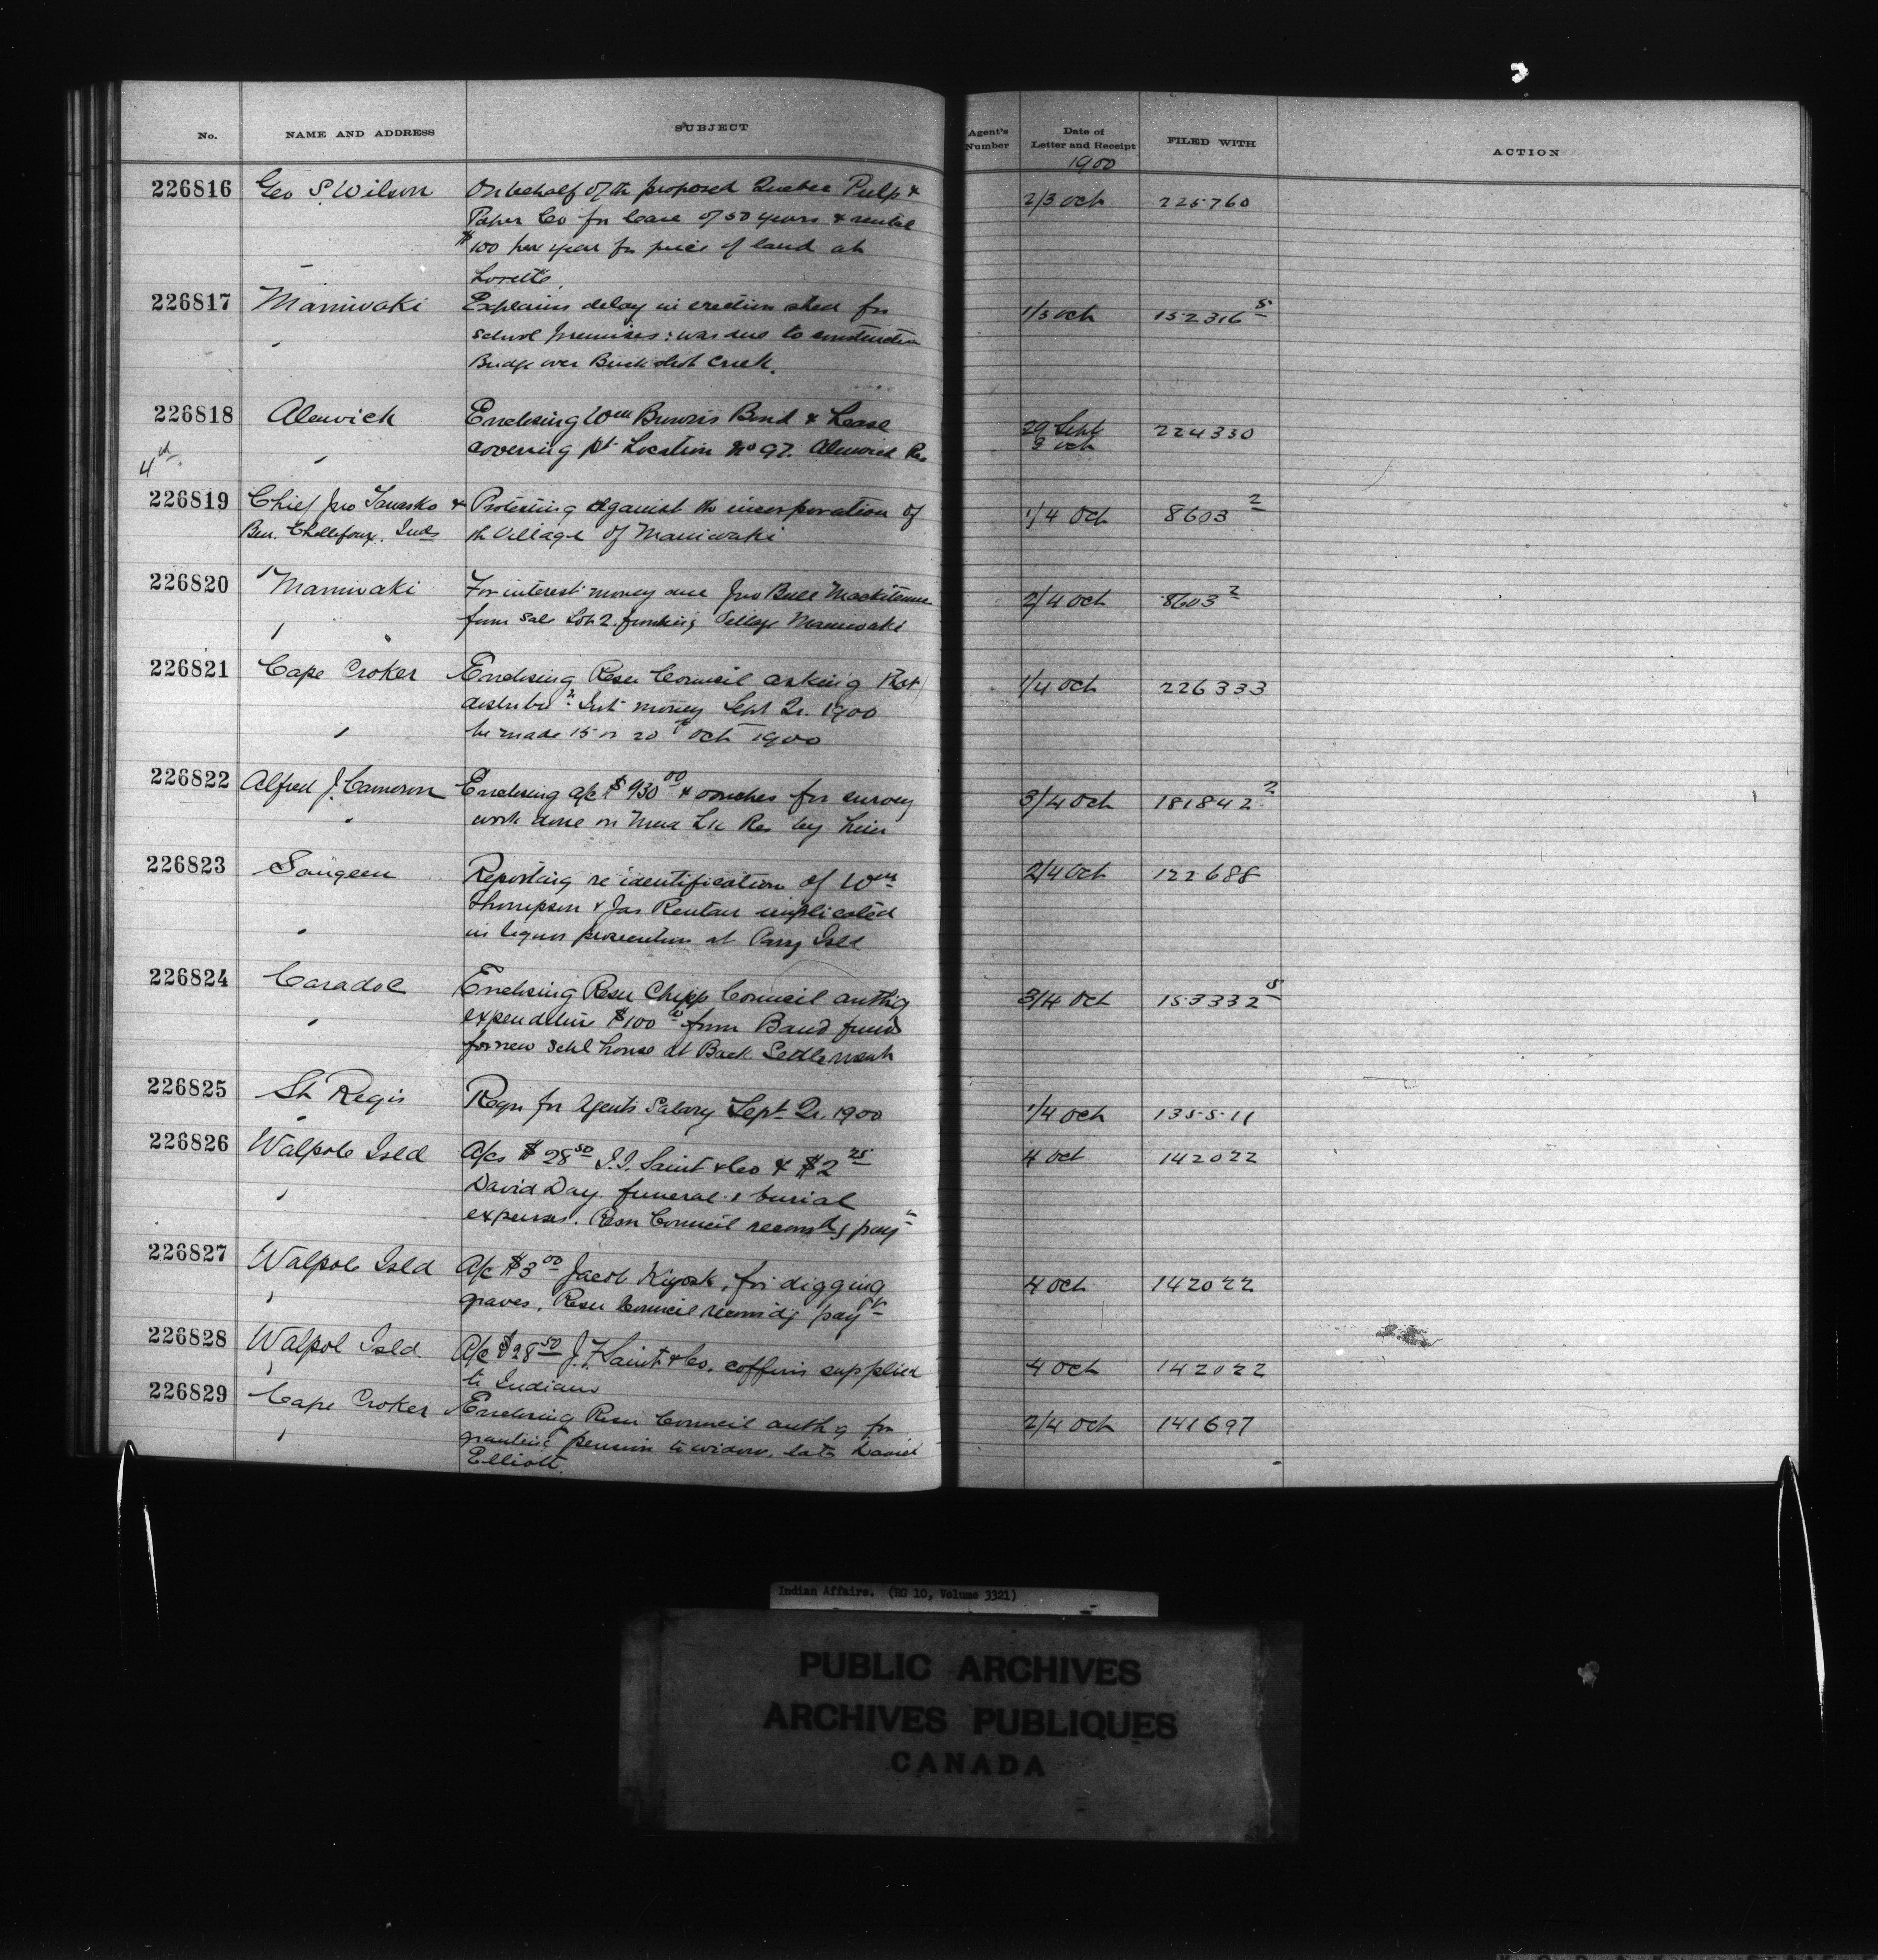 No. NAME AND ADDRESS SUBJECT Agent's Number Date of Letter and Receipt FILED WITH ACTION
1900
226816 Geo S. Wilson On behalf of the proposed Quebec Pulp & 2/3 Oct 225760
Paper Co for lease of 50 years & rental
$100 per year for piece of land at
Lorette.
226817 Maniwaki Explains delay in erection shed for 1/3 Oct 152316 5
School premises: was due to construction
Bridge over Buckshot Creek.
226818 Alnwick Enclosing Wm Brown's Bond & Lease 29 Sept 224330
covering pt Location No 97. Alnwick Res 2 Oct
4th
226819 Chief Jno Tenesko & Protesting against the incorporation of 1/4 Oct 8603 2
Ben. Chollifoux. Inds the Village of Maniwaki
226820 Maniwaki For interest money due Jno Bull 2/4 Oct 8603 2
from Sale Lot 2. fronting Village Maniwaki
226821 Cape Croker Enclosing Resn Council asking that 1/4 Oct 226333
distribun Int money Sept Qr. 1900
be made 15 or 20th Oct 1900
226822 Alfred J. Cameron Enclosing a/c $930 00 & vouches for survey 3/4 Oct 181842 2
work done on Mud Lk Res by him
226823 Saugeen Reporting re identification of Wm 2/4 Oct 122688
Thompson & Jas implicated
in liquor prosecution at Parry Isld
226824 Caradoc Enclosing Resn Chipp Council authg 3/4 Oct 153332 5
expenditure $100 00 from Band funds
for new Schl house at Back Settlement
226825 St Regis Reqn for Agents Salary Sept Qr. 1900 1/4 Oct 135511
226826 Walpole Isld A/cs $28 50 Saint & Co & $2 25 4 Oct 142022
David Day. funeral & burial
expenses. Resn Council recomdg payt
226827 Walpole Isld A/c $3 00 Jacob Kiyosk, for digging 4 Oct 142022
graves. Resn Council recomdg payt
226828 Walpol Isld A/c $28 50 J. F. Saint & Co. coffins supplied 4 Oct 142022
to Indians
226829 Cape Croker Enclosing Resn Council authg for 2/4 Oct 141697
granting pension to widow, late David
Elliott.
Indian Affairs. (RG 10, Volume 3321)
PUBLIC ARCHIVES
ARCHIVES PUBLIQUES
CANADA